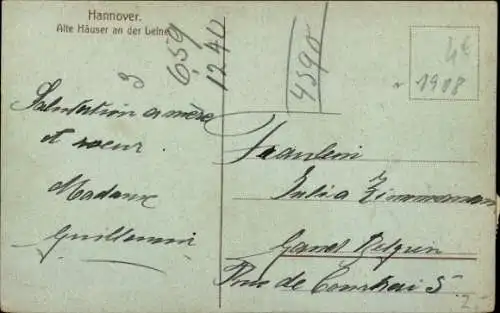 Hannover.
Alte Häuser an der Leine
3
659
1240
4590
4€
1908
Salutation a mère
et soeur
Madame
Guillaumin
Fräulein
Julia Zimmermann
Gand Belgien
Rue de Courtrai 5
2.-